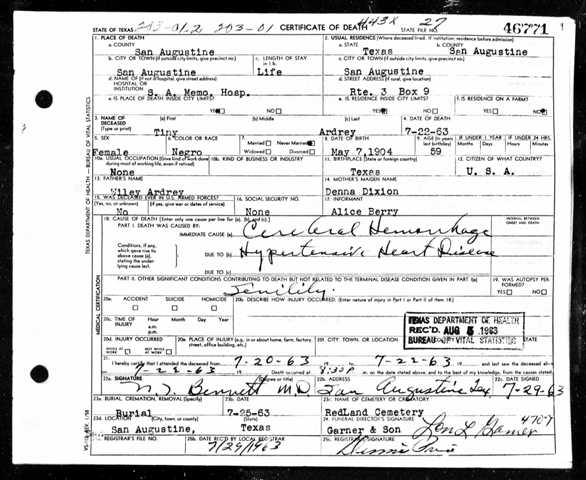 STATE OF TEXAS 203-01.2 203-01 CERTIFICATE OF DEATH 443X 27 STATE FILE NO. 46771
1. PLACE OF DEATH 2. USUAL RESIDENCE (Where deceased lived. If institution: residence before admission)
a. COUNTY San Augustine a. STATE Texas b. COUNTY San Augustine
b. CITY OR TOWN (If outside city limits, give precinct no.) c. LENGTH OF STAY c. CITY OR TOWN (If outside city limits, give precinct no.)
San Augustine Life San Augustine
d. NAME OF (If not in hospital, give street address) HOSPITAL OR INSTITUTION d. STREET ADDRESS (If rural, give location)
S. A. Memo. Hosp. Rte. 3 Box 9
e. IS PLACE OF DEATH INSIDE CITY LIMITS? e. IS RESIDENCE INSIDE CITY LIMITS? f. IS RESIDENCE ON A FARM?
YES NO YES NO YES NO
3. NAME OF DECEASED (Type or print) (a) First (b) Middle (c) Last 4. DATE OF DEATH
Tiny Ardrey 7-22-63
5. SEX 6. COLOR OR RACE 7. Married Never Married Widowed Divorced 8. DATE OF BIRTH 9. AGE (In years last birthday) IF UNDER 1 YEAR IF UNDER 24 HRS. Months Days Hours Minutes
Female Negro May 7,1904 59
10a. USUAL OCCUPATION (Give kind of work done during most of working life, even if retired) 10b. KIND OF BUSINESS OR INDUSTRY 11. BIRTHPLACE (State or foreign country) 12. CITIZEN OF WHAT COUNTRY?
None Texas U. S. A.
13. FATHER'S NAME 14. MOTHER'S MAIDEN NAME
Wiley Ardrey Denna Dixion
15. WAS DECEASED EVER IN U.S. ARMED FORCES? (Yes, no, or unknown) (If yes, give war or dates of service) 16. SOCIAL SECURITY NO. 17. INFORMANT
No None Alice Berry
18. CAUSE OF DEATH (Enter only one cause per line for (a), (b), and (c).) INTERVAL BETWEEN ONSET AND DEATH
PART I. DEATH WAS CAUSED BY:
IMMEDIATE CAUSE (a) Cerebral Hemorrhage
Conditions, if any, which gave rise to above cause (a), stating the underlying cause last. DUE TO (b) Hypertensive Heart Disease
DUE TO (c)
PART II. OTHER SIGNIFICANT CONDITIONS CONTRIBUTING TO DEATH BUT NOT RELATED TO THE TERMINAL DISEASE CONDITION GIVEN IN PART I(a) 19. WAS AUTOPSY PERFORMED?
Senility. YES NO
20a. ACCIDENT SUICIDE HOMICIDE 20b. DESCRIBE HOW INJURY OCCURRED. (Enter nature of injury in Part I or Part II of item 18.)
20c. TIME OF INJURY Hour Month Day Year
a.m.
p.m.
TEXAS DEPARTMENT OF HEALTH
REC'D. AUG 5 1963
BUREAU OF VITAL STATISTICS
20d. INJURY OCCURRED WHILE AT WORK NOT WHILE AT WORK 20e. PLACE OF INJURY (e.g. in or about home, farm, factory, street, office building, etc.) 20f. CITY, TOWN, OR LOCATION COUNTY
21. I hereby certify that I attended the deceased from 7-20-63 to 7-22-63 and last saw the deceased alive
7-22-63 Death occurred at 8:30P m. on the date stated above, and to the best of my knowledge, from the causes stated.
22a. SIGNATURE (Degree or title) 22b. ADDRESS 22c. DATE SIGNED
Bennett M.D San Augustine Tex 7-29-63
23a. BURIAL, CREMATION, REMOVAL (Specify) 23b. DATE 23c. NAME OF CEMETERY OR CREMATORY
Burial 7-25-63 RedLand Cemetery
23d. LOCATION (City, town, or county) (State) 24. FUNERAL DIRECTOR'S SIGNATURE
San Augustine, Texas Garner and Son Lon L. Garner 4709
25a. REGISTRAR'S FILE NO. 25b. DATE REC'D BY LOCAL REGISTRAR 25c. REGISTRAR'S SIGNATURE
7/29/1963
TEXAS DEPARTMENT OF HEALTH — BUREAU OF VITAL STATISTICS
MEDICAL CERTIFICATION